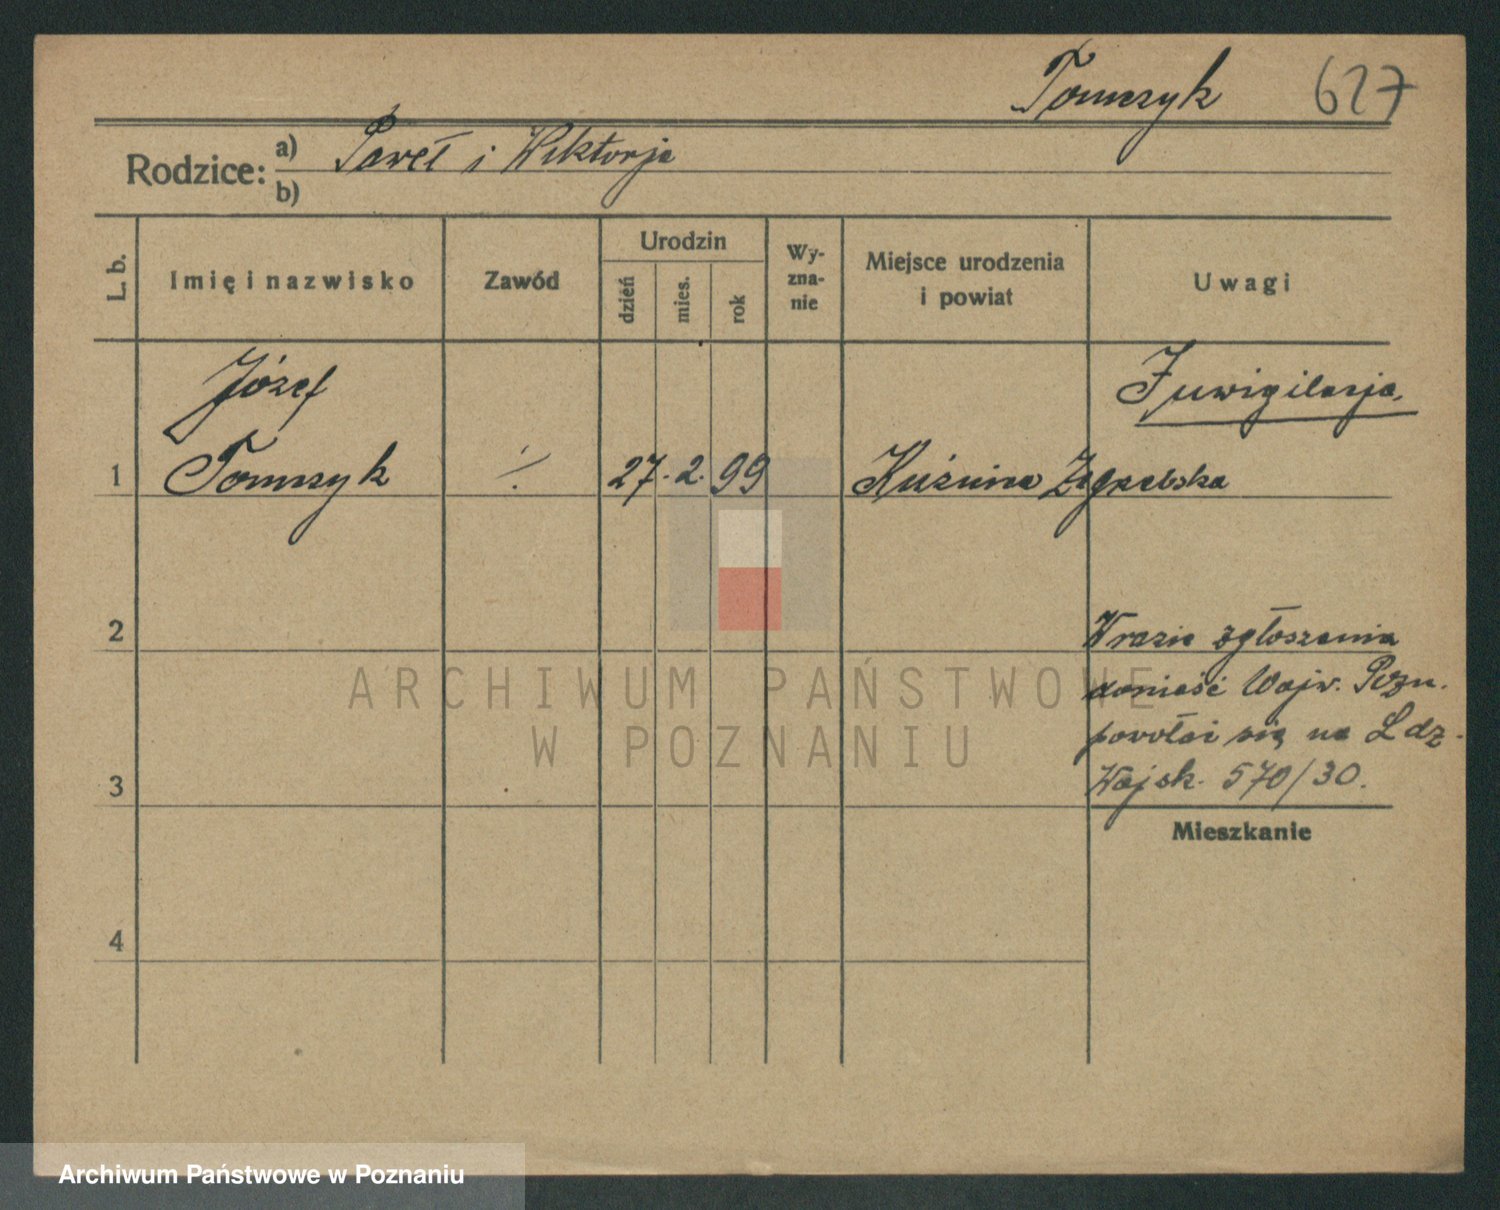 Tomczyk 627
Rodzice: a) Paweł i Wiktorja
b)
L. b.
Imię i nazwisko
Zawód
Urodzin
dzień
mies.
rok
Wy-
zna-
nie
Miejsce urodzenia
i powiat
Uwagi
Józef
Inwigilacja.
1 Tomczyk ·/. 27. 2. 99 Kuźnica Zgrzebska
2
Wrazie zgłoszenia
donieść Wojw. Pozn.
powołać się na L dz.
Wojsk. 570/30.
3
Mieszkanie
4
ARCHIWUM PAŃSTWOWE
W POZNANIU
Archiwum Państwowe w Poznaniu